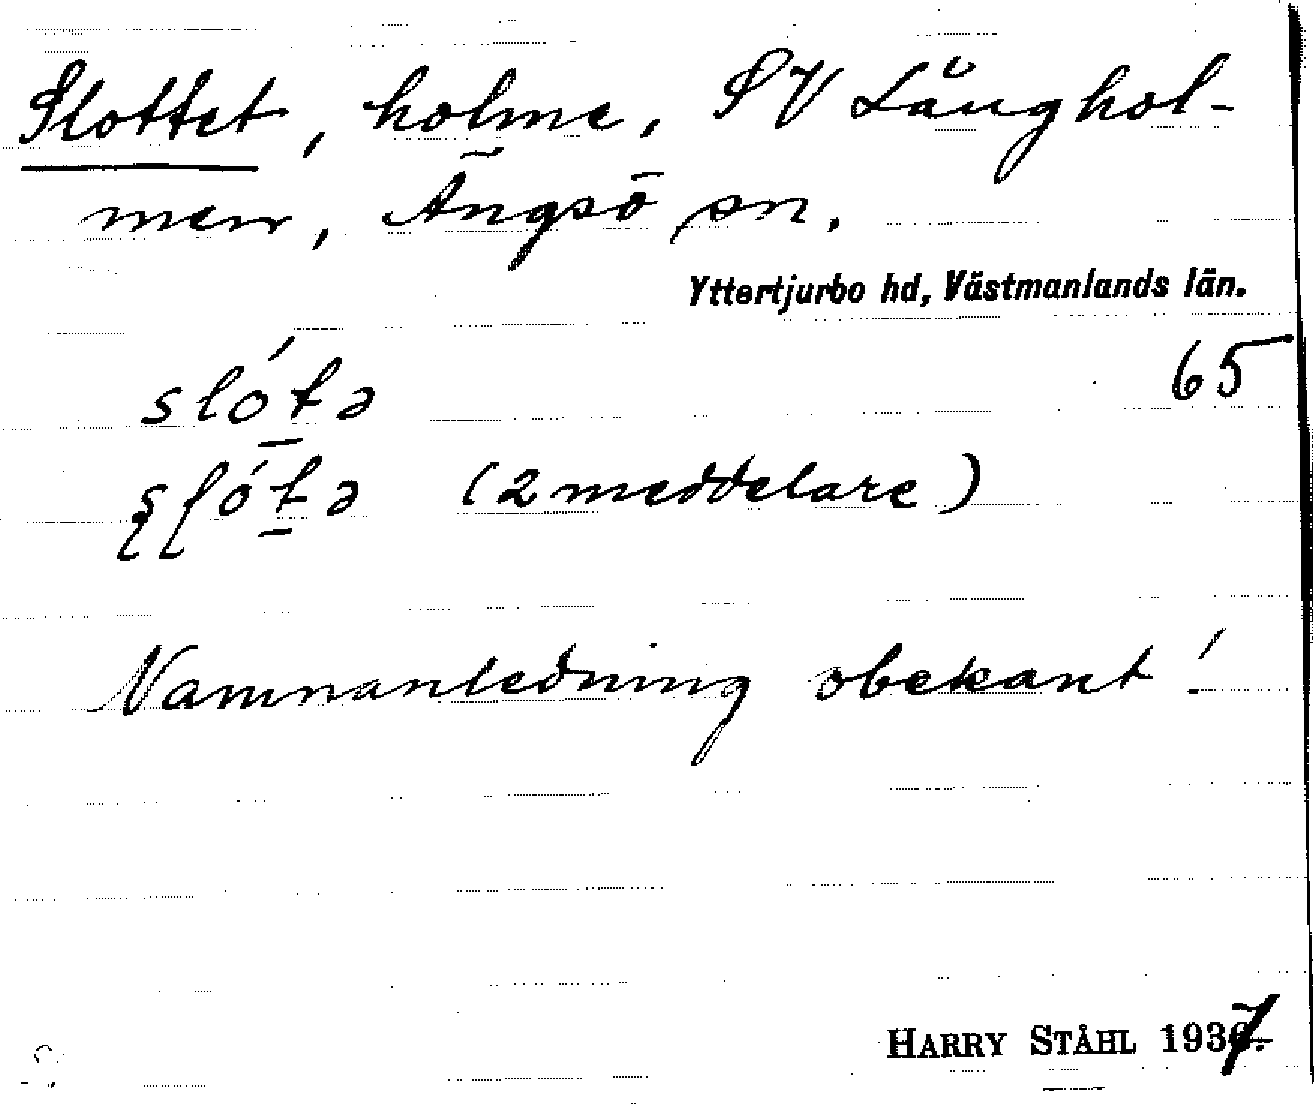 Slottet, holme, SV Långhol-
men, Ängsö sn.
Yttertjurbo hd, Västmanlands län.
65
slót̠ə
(2 meddelare)
Namnanledning obekant!
HARRY STÅHL 1937